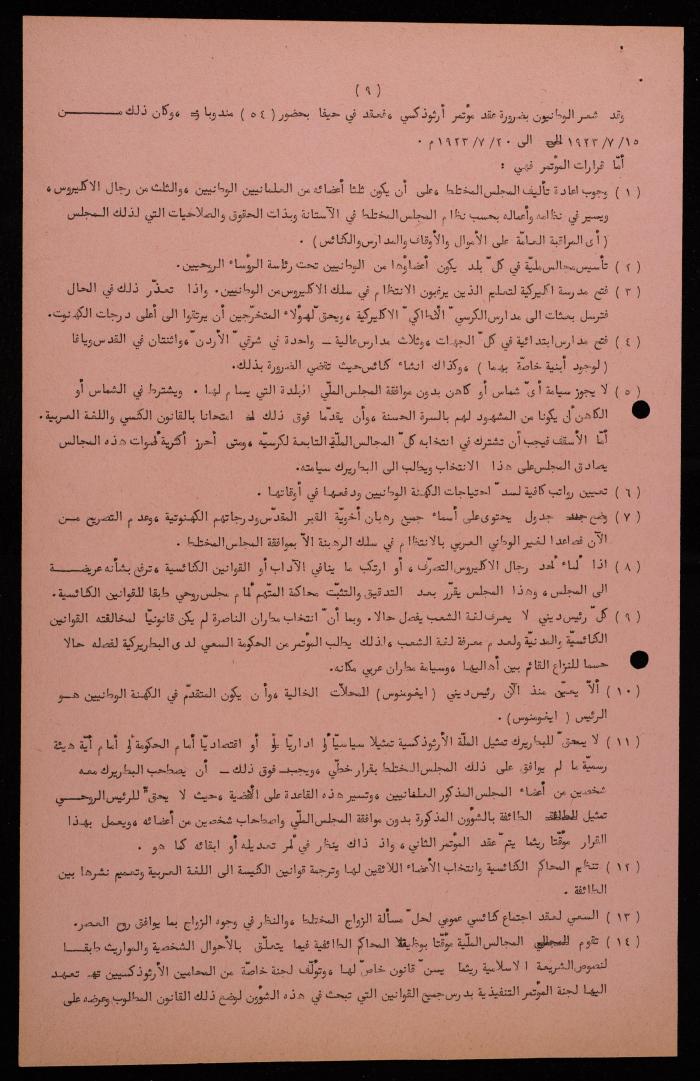 ( ٩ )
وقد شعر الوطنيون بضرورة عقد مؤتمر أرثوذكسي ، فعقد في حيفا بحضور ( ٥٤ ) مندوبا ، وكان ذلك من
١٥/ ٧/ ١٩٢٣ الى ٢٠/ ٧/ ١٩٢٣ م .
أمّا قرارات المؤتمر فهي :
( ١ ) وجوب اعادة تأليف المجلس المختلط ، على أن يكون ثلثا أعضائه من العلمانيين الوطنيين ، والثلث من رجال الاكليروس ،
ويسير في نظامه وأعماله بحسب نظام المجلس المختلط في الآستانة وبذات الحقوق والصلاحيات التي لذلك المجلس
( أى المراقبة العامّة على الأموال والأوقاف والمدارس والكنائس ) .
( ٢ ) تأسيس مجالس ملّية في كلّ بلد يكون أعضاؤها من الوطنيين تحت رئاسة الرؤساء الروحيين.
( ٣ ) فتح مدرسة اكليركية لتعليم الذين يرغبون الانتظام في سلك الاكليروس من الوطنيين. واذا تعذّر ذلك في الحال
فترسل بعثات الى مدارس الكرسيّ الأنطاكيّ الاكليركية ، ويحقّ لهؤلاء المتخرّجين أن يرتقوا الى أعلى درجات الكهنوت.
( ٤ ) فتح مدارس ابتدائية في كلّ الجهات ، وثلاث مدارس عالية ــ واحدة في شرقيّ الأردنّ ، واثنتان في القدس ويافا
( لوجود أبنية خاصّة بهما ) ، وكذلك انشاء كنائس حيث تقضي الضرورة بذلك.
( ٥ ) لا يجوز سيامة أىّ شماس أو كاهن بدون موافقة المجلس الملّي البلدة التي يسام لها . ويشترط في الشماس أو
الكاهن أن يكونا من المشهود لهم بالسرة الحسنة ، وأن يقدّما فوق ذلك امتحانا بالقانون الكنسي واللغة العربية.
أمّا الأسقف فيجب أن تشترك في انتخابه كلّ المجالس الملّية التابعة لكرسيّه ، ومتى أحرز أكثرية أصوات هذه المجالس
يصادق المجلس على هذا الانتخاب ويطلب الى البطريرك سيامته.
( ٦ ) تعيين رواتب كافية لسدّ احتياجات الكهنة الوطنيين ودفعها في أوقاتها .
( ٧ ) وضع جدول يحتوى على أسماء جميع رهبان أخويّة القبر المقدّس ودرجاتهم الكهنوتية ، وعدم التصريح من
الآن فصاعدا لغير الوطني العربي بالانتظام في سلك الرهبنة الاّ بموافقة المجلس المختلط .
( ٨ ) اذا أساء أحد رجال الاكليروس التصرّف ، أو ارتكب ما ينافي الآداب أو القوانين الكنائسية ، ترفع بشأنه عريضة
الى المجلس ، وهذا المجلس يقرّر بعد التدقيق والتثبّت محاكمة المتّهم أمام مجلس روحي طبقا للقوانين الكنائسية.
( ٩ ) كلّ رئيس ديني لا يعرف لغة الشعب يفصل حالا. وبما أنّ انتخاب مطران الناصرة لم يكن قانونيّا لمخالفته القوانين
الكنائسيّة والمدنيّة ولعدم معرفة لغة الشعب ، لذلك يطلب المؤتمر من الحكومة السعي لدى البطريركية لفصله حالا
حسما للنزاع القائم بين أهاليها ، وسيامة مطران عربي مكانه.
( ١٠ ) ألاّ يعيّن منذ الآن رئيس ديني ( ايغومنوس ) للمحلاّت الخالية ، وأن يكون المتقدّم في الكهنة الوطنيين هو
الرئيس ( ايغومنوس ) .
( ١١ ) لا يحقّ للبطريرك تمثيل الملّة الأرثوذكسية تمثيلا سياسيّا أو اداريّا أو اقتصاديّا أمام الحكومة أو أمام أيّة هيئة
رسميّة ما لم يوافق على ذلك المجلس المختلط بقرار خطّي ، ويجب فوق ذلك ــ أن يصطحب البطريرك معه
شخصين من أعضاء المجلس المذكور العلمانيين ، وتسير هذه القاعدة على الأقضية ، حيث لا يحقّ للرئيس الروحي
تمثيل الطائفة بالشؤون المذكورة بدون موافقة المجلس الملّي واصطحاب شخصين من أعضائه ، ويعمل بهذا
القرار مؤقّتا ريثما يتمّ عقد المؤتمر الثاني ، واذ ذاك ينظر في أمر تعديله أو ابقائه كما هو .
( ١٢ ) تنظيم المحاكم الكنائسية وانتخاب الأعضاء اللائقين لها وترجمة قوانين الكنيسة الى اللغة العربية وتعميم نشرها بين
الطائفة .
( ١٣ ) السعي لعقد اجتماع كنائسي عمومي لحلّ مسألة الزواج المختلط ، والنظر في وجوه الزواج بما يوافق روح العصر.
( ١٤ ) تقوم المجالس الملّية مؤقّتا بوظيفة المحاكم الطائفية فيما يتعلّق بالأحوال الشخصية والمواريث طبقا
لنصوص الشريعة الاسلامية ريثما يسنّ قانون خاصّ لها ، وتؤلّف لجنة خاصّة من المحامين الأرثوذكسيين تعهد
اليها لجنة المؤتمر التنفيذية بدرس جميع القوانين التي تبحث في هذه الشؤون لوضع ذلك القانون المطلوب وعرضه على